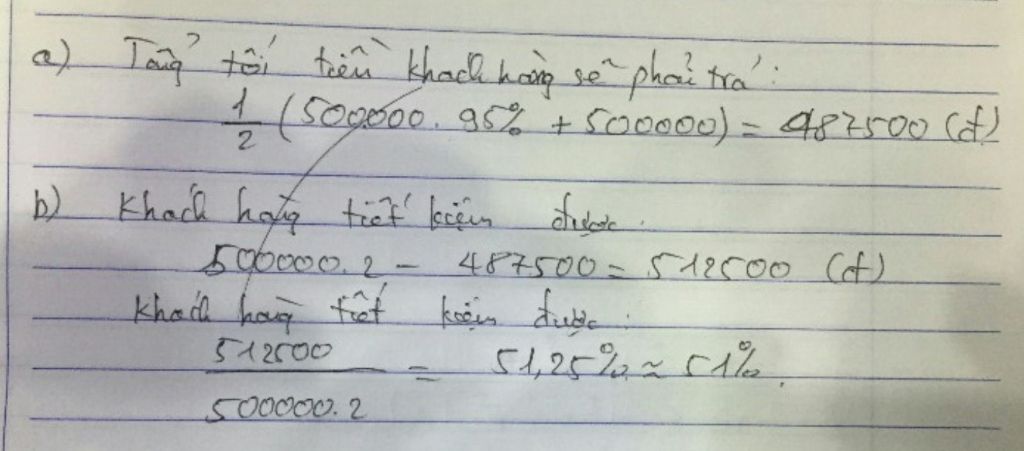 a) Tổng tối tiền khách hàng sẽ phải trả:
1/2 (500000. 95% + 500000) = 487500 (đ)
b) Khách hàng tiết kiệm được:
500000.2 - 487500 = 512500 (đ)
Khách hàng tiết kiệm được:
512500/500000.2 = 51,25% ≈ 51%.